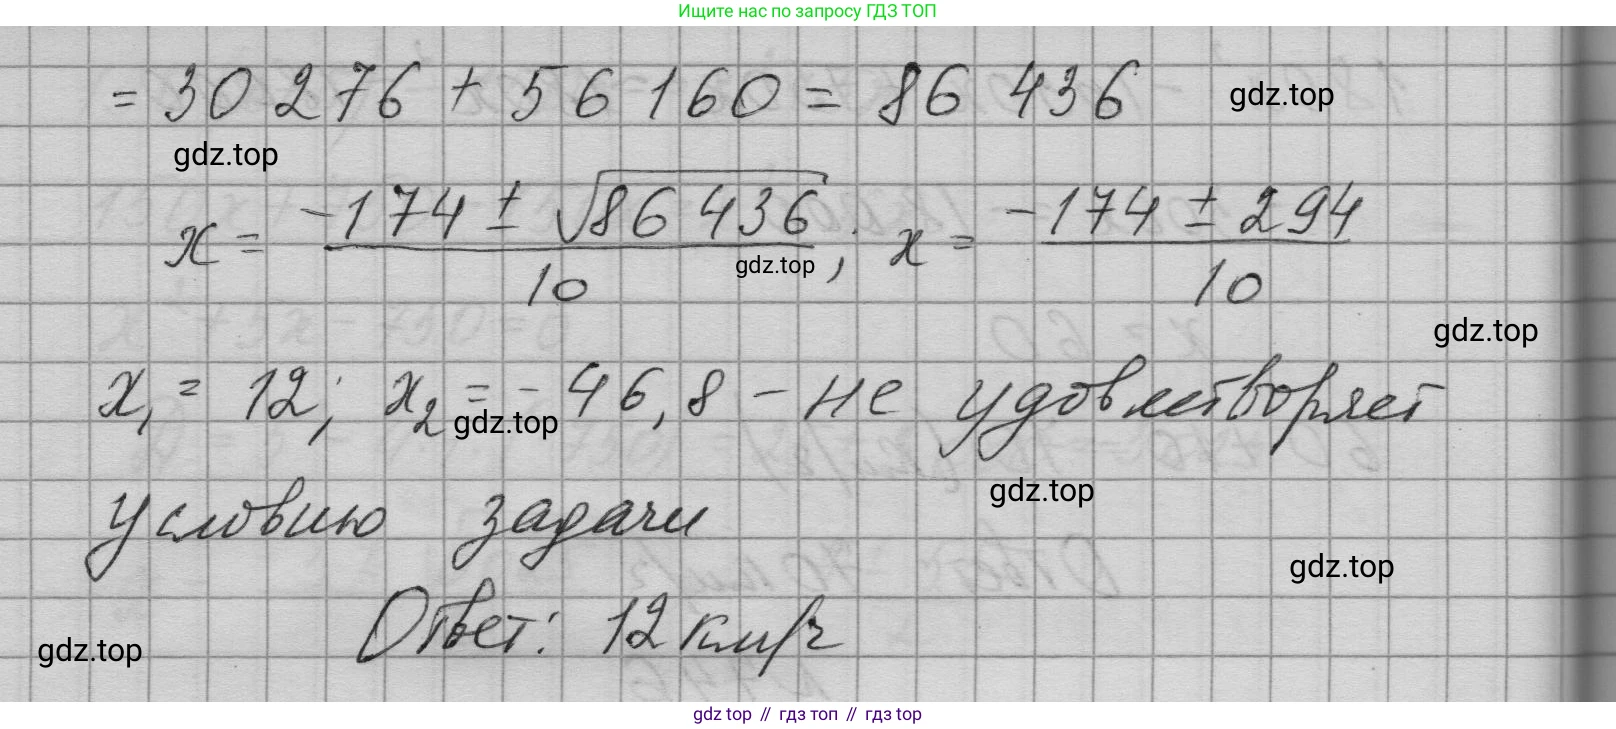 Ищите нас по запросу ГДЗ ТОП
= 30 276 + 56 160 = 86 436
gdz.top
gdz.top
x = (-174 ± √86 436) / 10 ; x = (-174 ± 294) / 10
gdz.top
gdz.top
x₁ = 12; x₂ = -46,8 - не удовлетворяет
gdz.top
gdz.top
условию задачи
gdz.top
Ответ: 12 км/ч
gdz.top
gdz top // гдз топ // гдз top